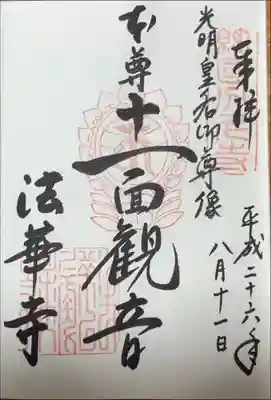 奉拝
平成二十六年
八月十一日
光明皇后御尊像
本尊十一面観音
法華寺